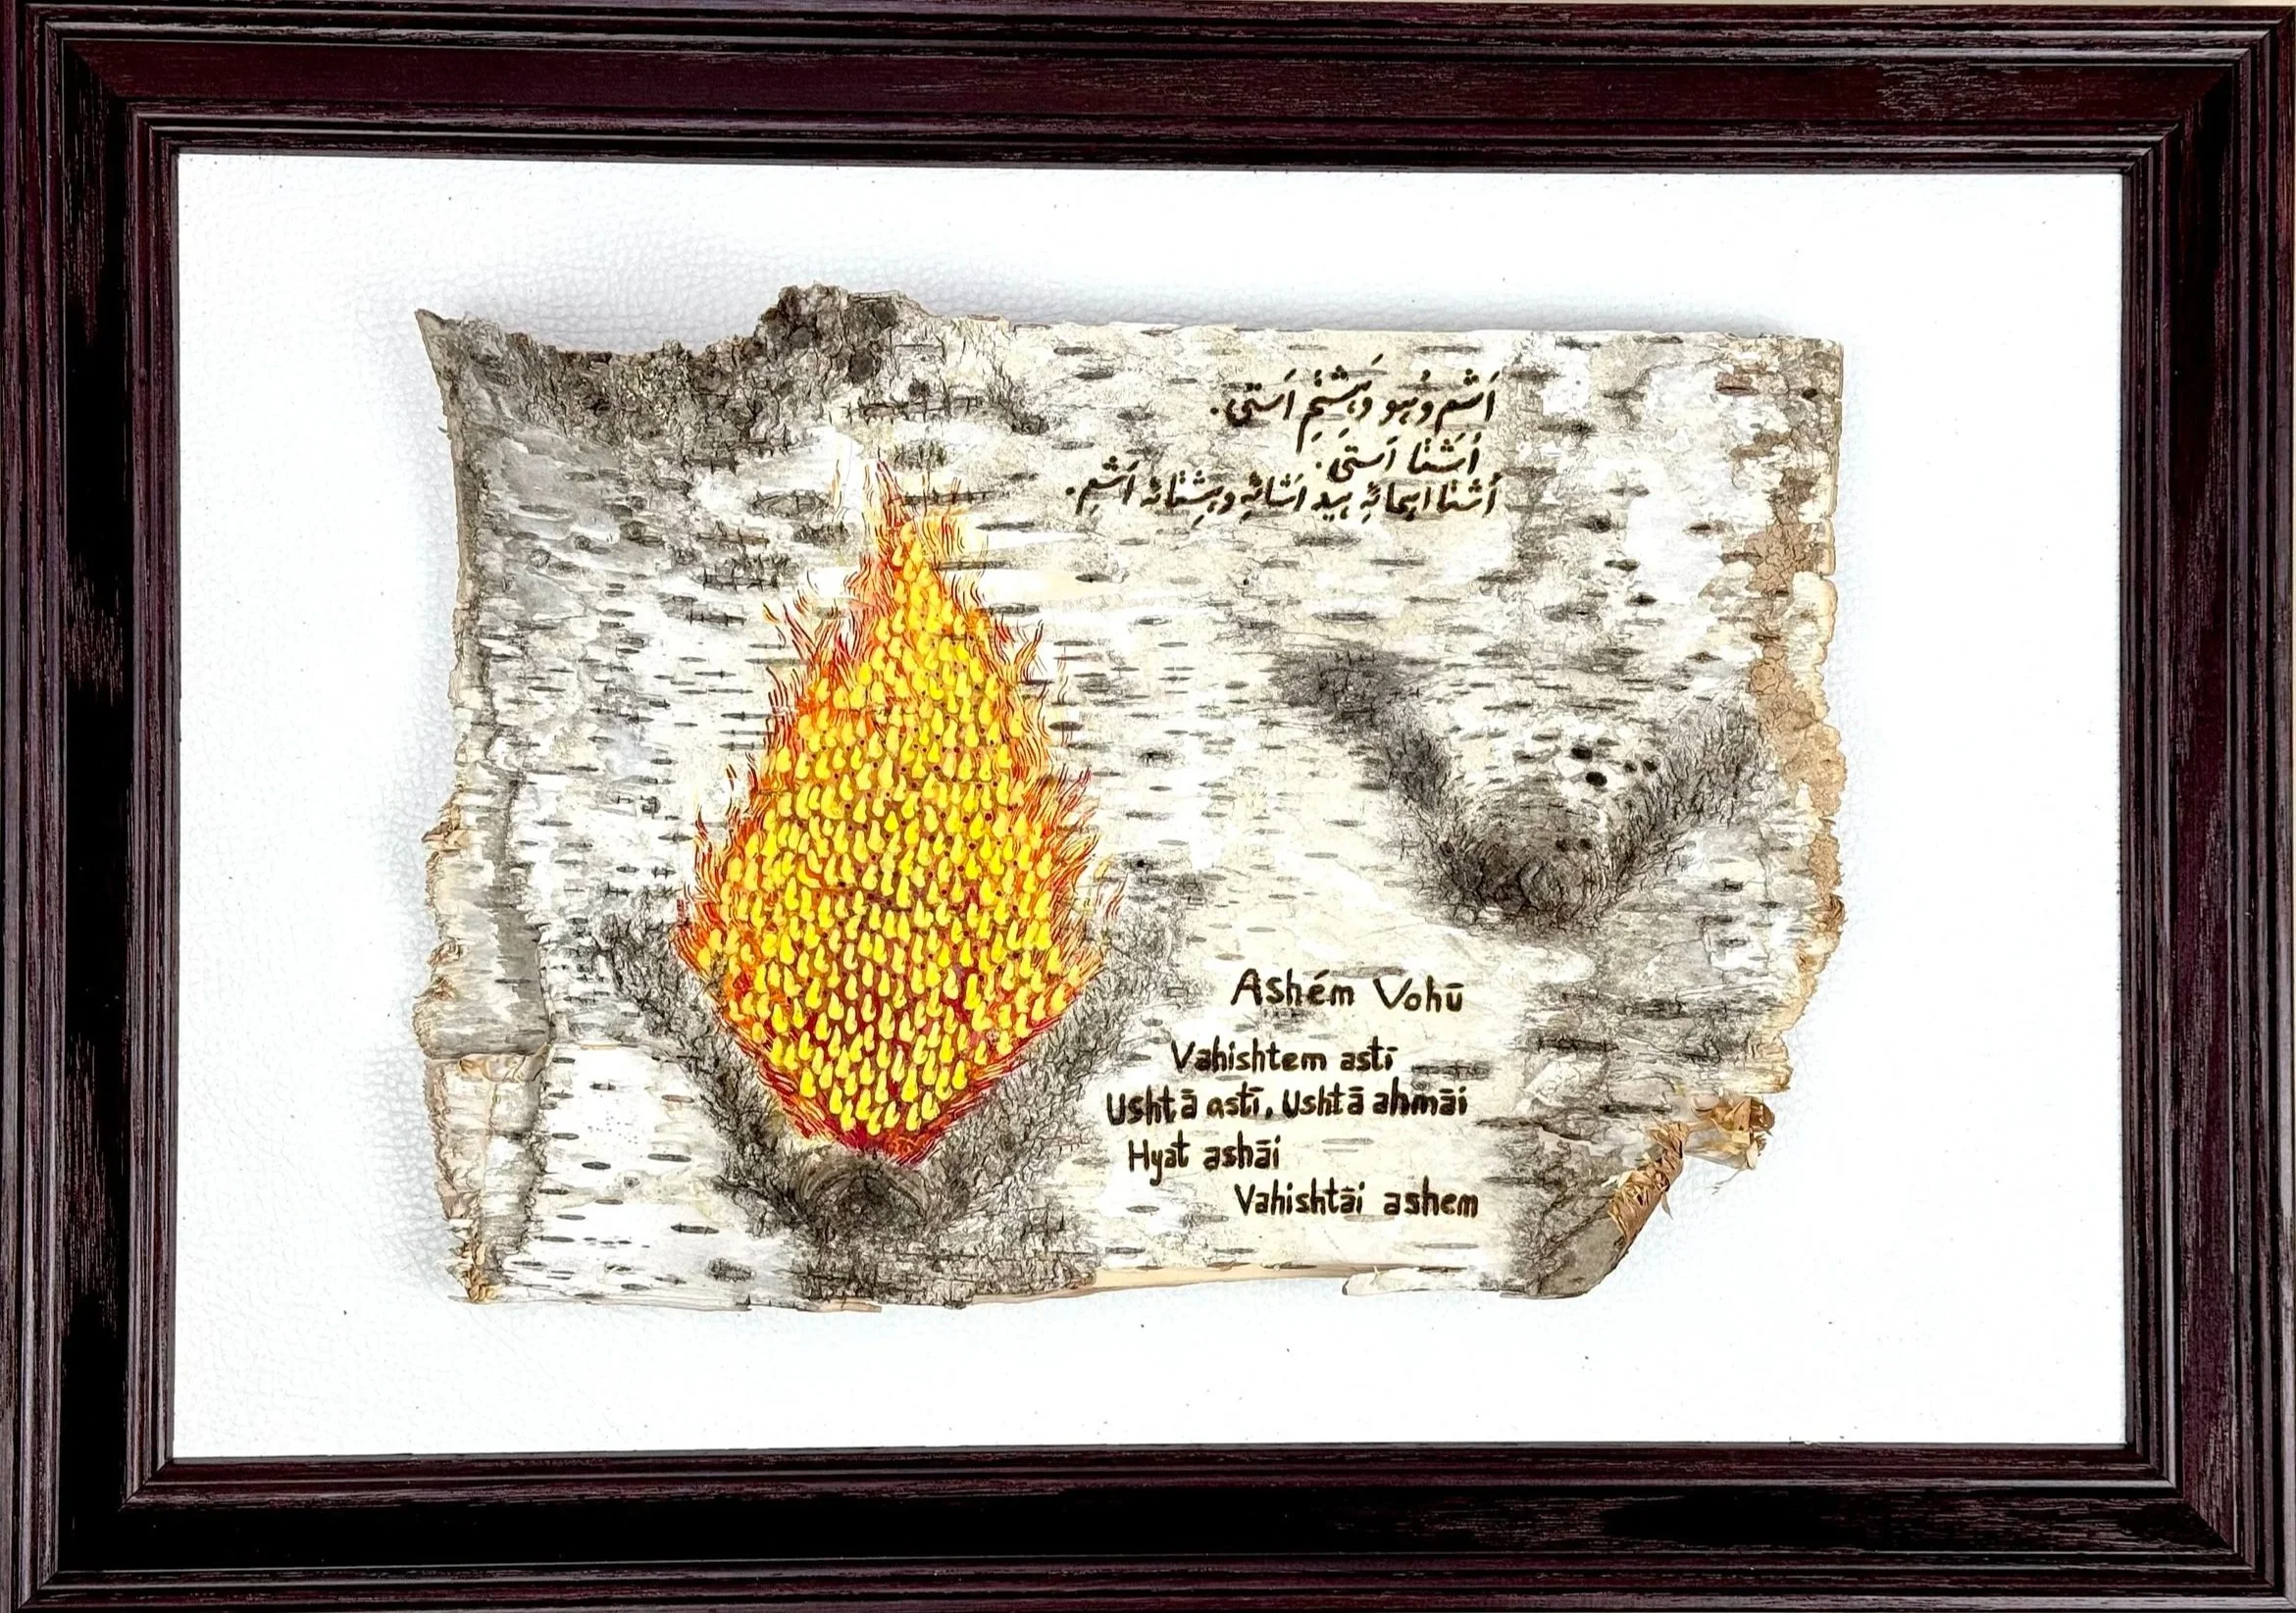 اَشِم وُهو وَهیشتِم اَستی.
اُشتا اَستی.
اُشتا اهمائِه هیَد اَشائِه وَهیشتائِه اَشِم.
Ashém Vohū
Vahishtem astī
Ushtā astī, Ushtā ahmāi
Hyat ashāi
Vahishtāi ashem